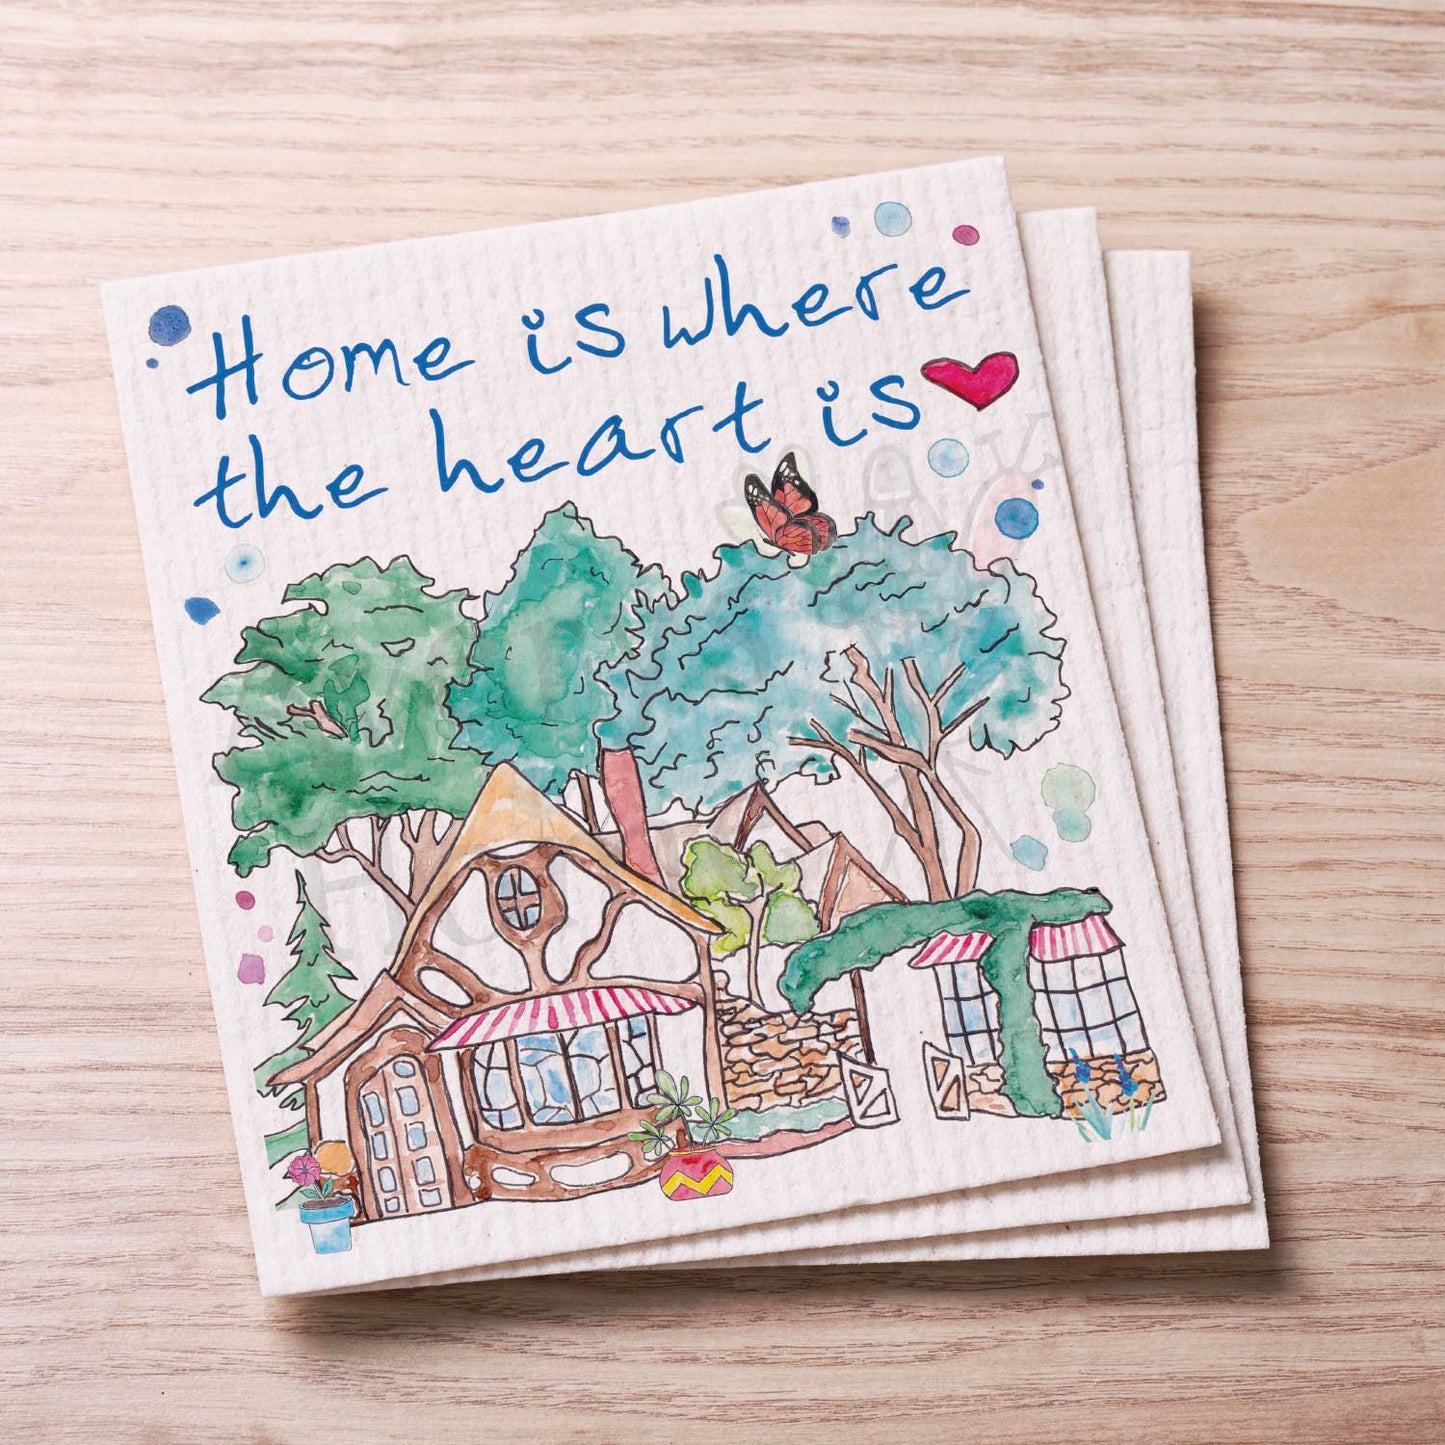 Home is where
the heart is